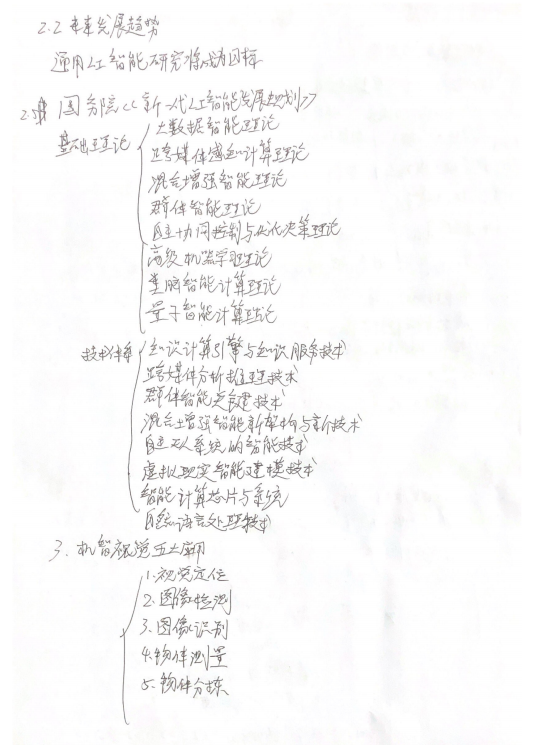 2.2 未来发展趋势
通用人工智能研究将成为目标
国务院《新一代人工智能发展规划》
基础理论
大数据智能理论
跨媒体感知计算理论
混合增强智能理论
群体智能理论
自主协同控制与优化决策理论
高级机器学习理论
类脑智能计算理论
量子智能计算理论
技术体系
知识计算引擎与知识服务技术
跨媒体分析推理技术
群体智能关键技术
混合增强智能新架构与新技术
自主无人系统的智能技术
虚拟现实智能建模技术
智能计算芯片与系统
自然语言处理技术
3. 机器视觉五大应用
1. 视觉定位
2. 图像检测
3. 图像识别
4. 物体测量
5. 物体分拣